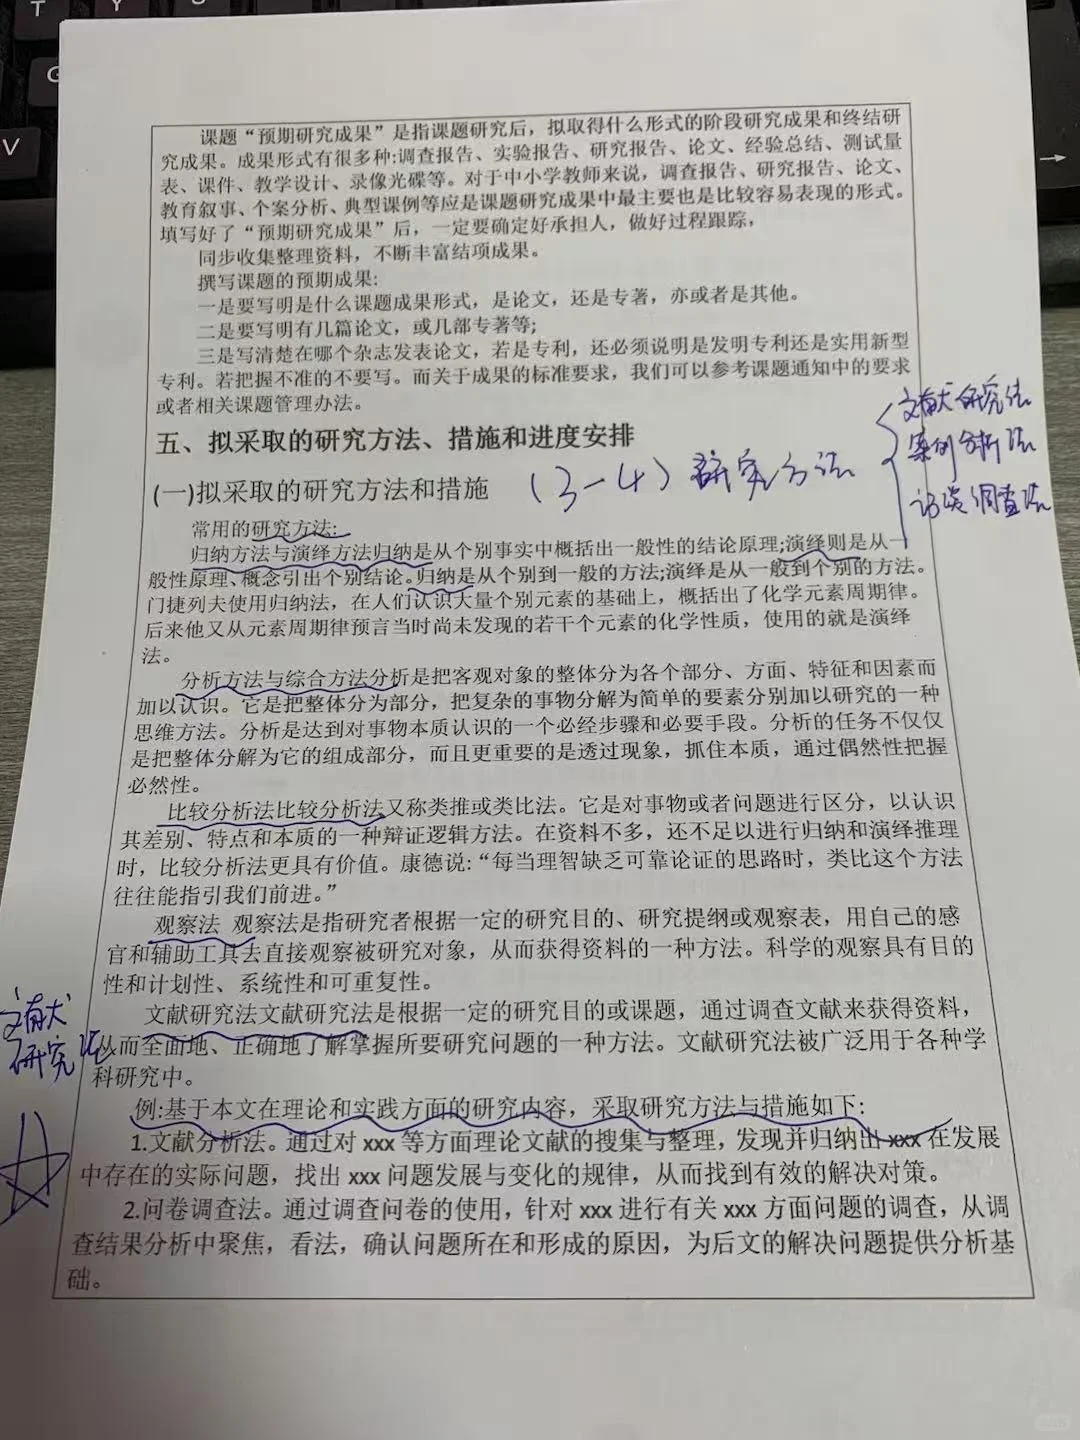 T Y
G
V
→
课题“预期研究成果”是指课题研究后，拟取得什么形式的阶段研究成果和终结研
究成果。成果形式有很多种:调查报告、实验报告、研究报告、论文、经验总结、测试量
表、课件、教学设计、录像光碟等。对于中小学教师来说，调查报告、研究报告、论文、
教育叙事、个案分析、典型课例等应是课题研究成果中最主要也是比较容易表现的形式。
填写好了“预期研究成果”后，一定要确定好承担人，做好过程跟踪，
同步收集整理资料，不断丰富结项成果。
撰写课题的预期成果:
一是要写明是什么课题成果形式，是论文，还是专著，亦或者是其他。
二是要写明有几篇论文，或几部专著等;
三是写清楚在哪个杂志发表论文，若是专利，还必须说明是发明专利还是实用新型
专利。若把握不准的不要写。而关于成果的标准要求，我们可以参考课题通知中的要求
或者相关课题管理办法。
五、拟采取的研究方法、措施和进度安排
文献研究法
案例分析法
访谈调查法
(一)拟采取的研究方法和措施 （3-4）研究方法
常用的研究方法:
归纳方法与演绎方法归纳是从个别事实中概括出一般性的结论原理;演绎则是从一
般性原理、概念引出个别结论。归纳是从个别到一般的方法;演绎是从一般到个别的方法。
门捷列夫使用归纳法，在人们认识大量个别元素的基础上，概括出了化学元素周期律。
后来他又从元素周期律预言当时尚未发现的若干个元素的化学性质，使用的就是演绎
法。
分析方法与综合方法分析是把客观对象的整体分为各个部分、方面、特征和因素而
加以认识。它是把整体分为部分，把复杂的事物分解为简单的要素分别加以研究的一种
思维方法。分析是达到对事物本质认识的一个必经步骤和必要手段。分析的任务不仅仅
是把整体分解为它的组成部分，而且更重要的是透过现象，抓住本质，通过偶然性把握
必然性。
比较分析法比较分析法又称类推或类比法。它是对事物或者问题进行区分，以认识
其差别、特点和本质的一种辩证逻辑方法。在资料不多，还不足以进行归纳和演绎推理
时，比较分析法更具有价值。康德说:“每当理智缺乏可靠论证的思路时，类比这个方法
往往能指引我们前进。”
观察法 观察法是指研究者根据一定的研究目的、研究提纲或观察表，用自己的感
官和辅助工具去直接观察被研究对象，从而获得资料的一种方法。科学的观察具有目的
性和计划性、系统性和可重复性。
文献
研究法
文献研究法文献研究法是根据一定的研究目的或课题，通过调查文献来获得资料，
从而全面地、正确地了解掌握所要研究问题的一种方法。文献研究法被广泛用于各种学
科研究中。
例:基于本文在理论和实践方面的研究内容，采取研究方法与措施如下:
1.文献分析法。通过对 xxx 等方面理论文献的搜集与整理，发现并归纳出 xxx 在发展
中存在的实际问题，找出 xxx 问题发展与变化的规律，从而找到有效的解决对策。
2.问卷调查法。通过调查问卷的使用，针对 xxx 进行有关 xxx 方面问题的调查，从调
查结果分析中聚焦，看法，确认问题所在和形成的原因，为后文的解决问题提供分析基
础。